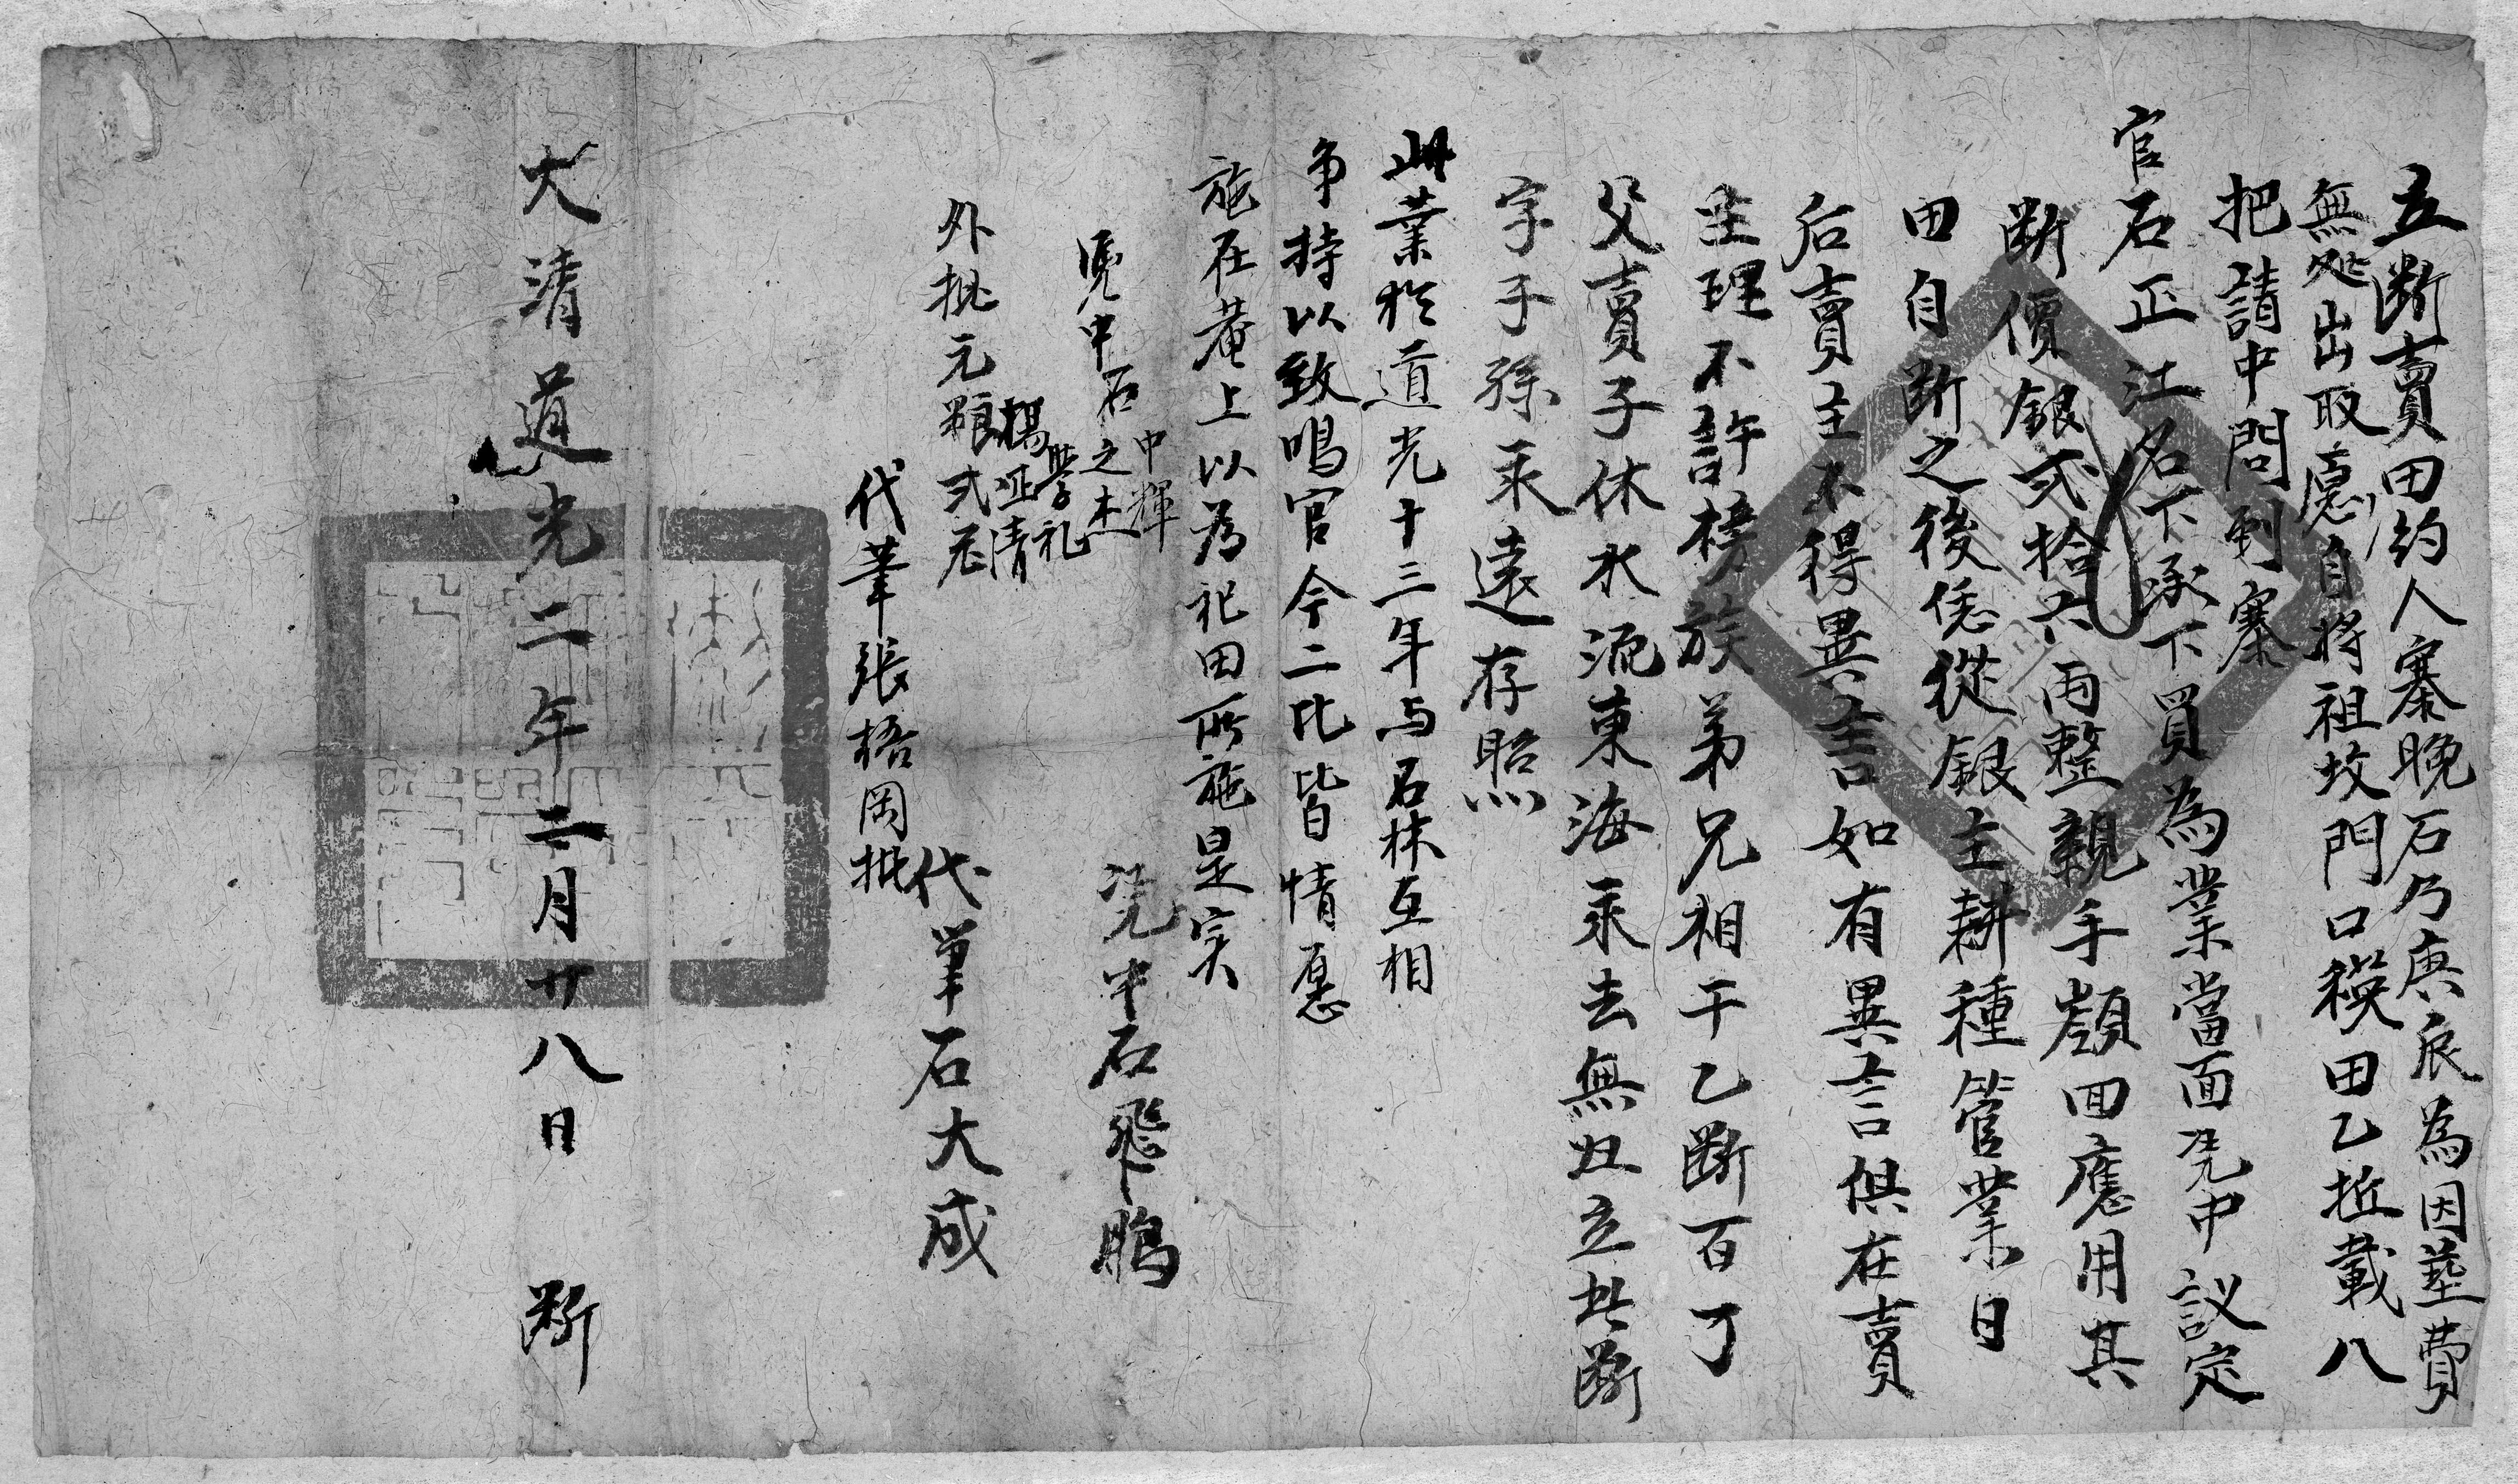 立断賣田約人寨晚石乃庚辰為因塟費
無処出取愿自將祖坟門口秧田乙坵載八
把請中問到寨
官石正江名下承下買為業當面凴中議定
断價銀弍拾六兩整親手領回應用其
田自断之後恁從銀主耕種管業日
后賣主不得異言如有異言俱在賣
主理不許榜族弟兄相干乙断百了
父賣子休水流東海永去無囬立此断
字子孫永遠存照
此業於道光十三年与石林互相
争持以致鳴官今二比皆情愿
施在菴上以為祀田所施是实
凴中石之杰
中輝
學礼
楊正清
凴中石飛鵬
外批元粮弍
代筆石大成
代筆張梧岡批
大清道光二年二月廿八日 断